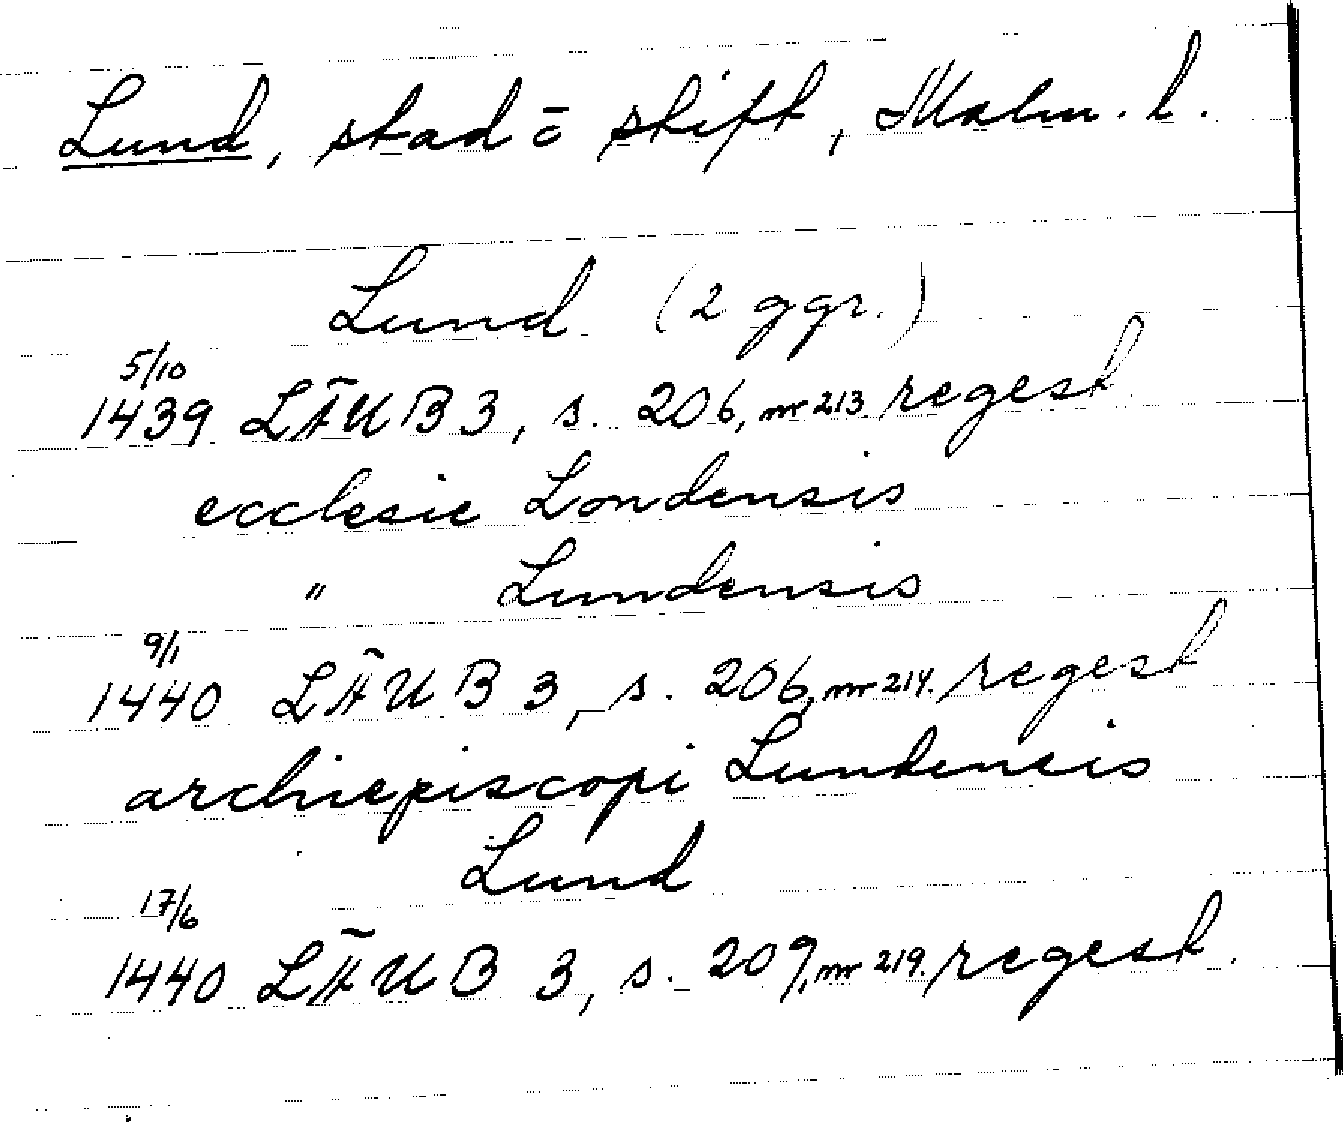 Lund, stad ō stift, Malm. l.
Lund (2 ggr.)
5/10
1439 LÄUB 3, s. 206, nr 213. regest
ecclesie Londensis
" Lundensis
9/1
1440 LÄUB 3, s. 206, nr 214. regest
archiepiscopi Lundensis
Lund
17/6
1440 LÄUB 3, s. 209, nr 219. regest.